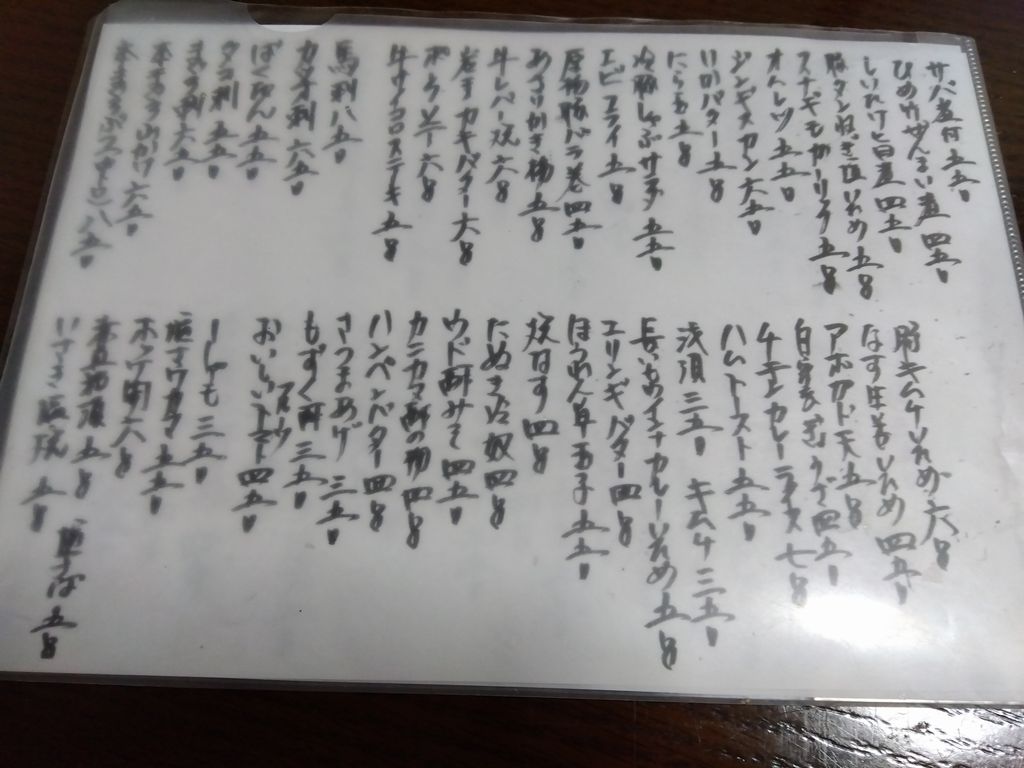 サバ煮付 五五〇
ひめ竹やんまい煮 四五〇
しいたけ旨煮 四五〇
豚タンねぎ塩いため 五〇〇
スナギモガーリック 五〇〇
オムレツ 五五〇
ジンギスカン 六五〇
いかバター 五五〇
にら玉 五〇〇
冷豚しゃぶサラダ 五五〇
エビフライ 五〇〇
豚バラ巻 四五〇
あさりかき揚 五〇〇
牛レバー炙 六〇〇
岩手カキバター 六〇〇
ポークソテー 六〇〇
牛サイコロステーキ 五〇〇
馬刺 八五〇
カツオ刺 六五〇
ばくらい 五五〇
タコ刺 五五〇
まぐろ刺 六五〇
本まぐろ山かけ 六五〇
本まぐろ 八五〇
豚キムチいため 六〇〇
なす生姜いため 四五〇
アボカド天 五〇〇
自家製 四五〇
チキンカレーライス 七〇〇
ハムトースト 五五〇
浅漬 三五〇 キムチ 三五〇
長いもインナカレーいため 五〇〇
エリンギバター 四〇〇
ほうれん草玉子 五五〇
焼なす 四〇〇
たぬき冷奴 四〇〇
ウド酢みそ 四五〇
カニカマ酢の物 四〇〇
ハンペンバター 四〇〇
さつまあげ 三五〇
もずく酢 三五〇
おいしいトマト 四五〇
ししゃも 三五〇
塩サケカマ 五五〇
ホッケ開 六〇〇
五〇〇
塩焼 五〇〇 そば 五〇〇